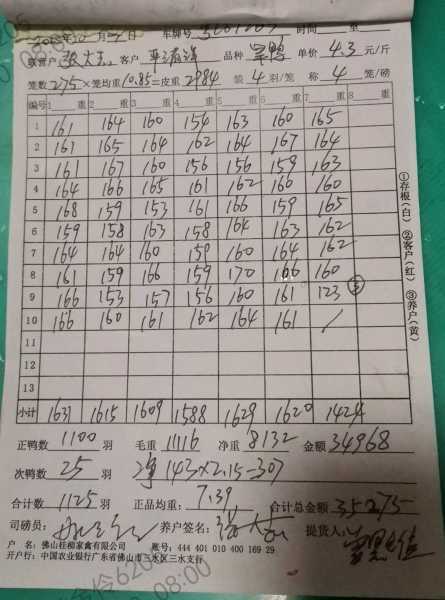 年 月 日 车牌号 时间 至
联营户 客户 品种 单价 4.3 元/斤
笼数 275 × 笼均重 10.85 = 皮重 2984 装 4 羽/笼 称 4 笼/磅
编号 1 重 2 重 3 重 4 重 5 重 6 重 7 重 8 重
1 161 164 160 154 163 160 165
2 161 165 164 162 164 167 164
3 161 167 160 156 156 159 163
4 164 166 165 161 162 160 160
5 168 159 153 161 166 159 165
6 159 158 163 158 164 163 162
7 164 164 160 159 160 164 162
8 161 159 166 159 170 166 160
9 166 153 157 156 160 161 123 ③
10 166 160 161 162 164 161 /
11
12
13
小计 1631 1615 1609 1588 1629 1620 1424
正鸭数 1100 羽 毛重 11116 净重 8132 金额 34968
次鸭数 25 羽 净 143×2.15=307
合计数 1125 羽 正品均重: 7.39 合计总金额 35275
司磅员: 养户签名: 提货人:
户 名: 佛山桂柳家禽有限公司 账号: 444 401 010 400 169 29
开户行: 中国农业银行广东省佛山市三水区三水支行
①存根(白) ②客户(红) ③养户(黄)